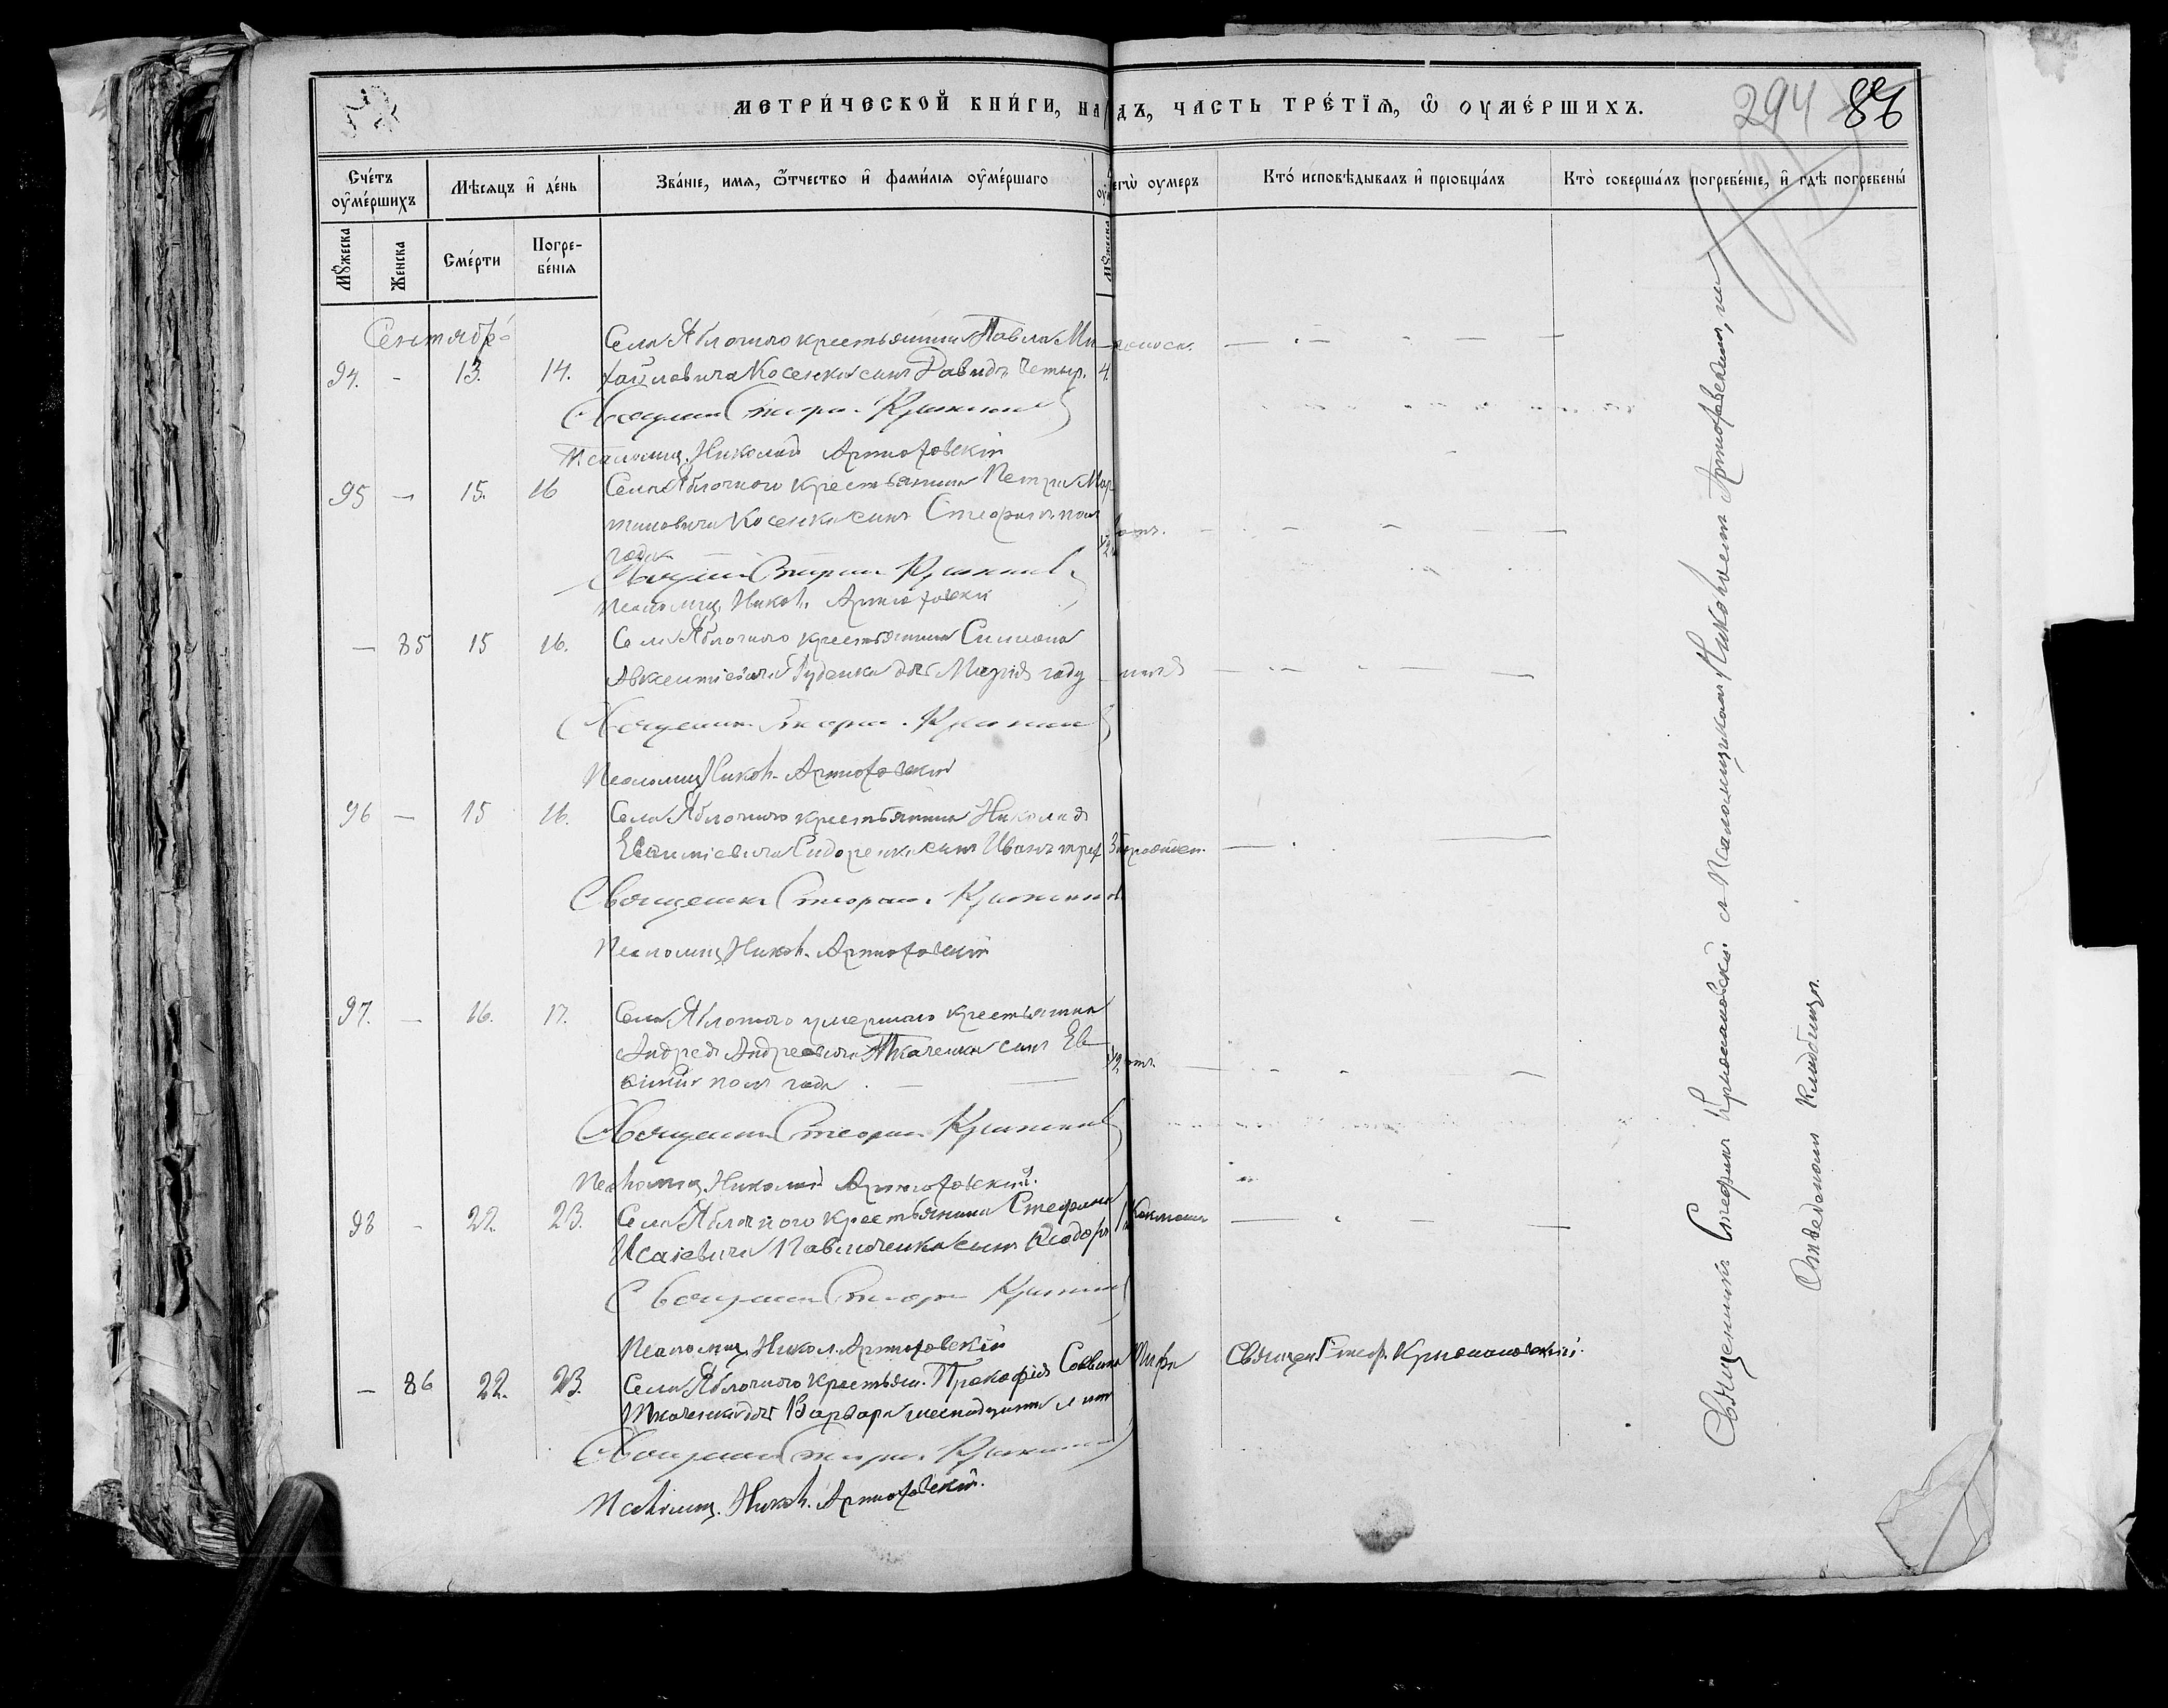 МЕТРИ́ЧЕСКОЙ КНИ́ГИ, НА ДЪ, ЧАСТЬ ТРЕ́ТЇѦ, Ѿ ОУМЕ́РШИХЪ.
294 86
Сче́тъ оуме́ршихъ
Мѣсяцъ и де́нь
Зва́нїе, имя, ѿтчество и фами́лїя оуме́ршаго
егѡ оумеръ
Кто́ исповѣдывалъ и прїобща́лъ
Кто̀ соверша́лъ погребе́нїе, и гдѣ погребены́
Мꙋжеска
Женска
Сме́рти
Погребе́нїя
Мꙋжеска
Сентябрь
94. - 13. 14. Села Яблочного крестьянина Павла Михайловича Косенка сынъ Давидъ четыр. 4.
Священникъ Стефанъ
Псаломщ. Николай Артюховскій
95 — 15. 16 Села Яблочного крестьянина Петра Мартиновича Косенка сынъ Стефанъ пол
года
Священ Стефанъ
Псаломщ. Никол. Артюховскій
— 85 15 16. Села Яблочного крестьянина Симеона
Авксентіевича Руденка дочь Марія году
Священникъ Стефан.
Псаломщ Никол. Артюховскій
96 — 15 16. Села Яблочного крестьянина Николая
Евфиміевича Сидоренка сынъ Иванъ трех 3
Священникъ Стефан.
Псаломщ Никол. Артюховскій
97. — 16. 17. Села Яблочного умершаго крестьянина
Андрея Андреевича Ткаченка сынъ Ев
фимій пол года 1/2
Священникъ Стефан.
Псаломщ. Николай Артюховскій.
98 - 22. 23. Села Яблочного крестьянина Стефана
Исаіевича Павлюченка сынъ Ѳеодоръ
Священникъ Стефан
Псаломщ. Никол. Артюховскій
— 86 22. 23. Села Яблочного крестьян. Прокофія Саввина Тифа Священ. Стеф. Крыжановскій.
Ткаченка дочь Варвара лет
Священникъ Стефан
Псаломщ. Никол. Артюховскій.
Священникъ Стефанъ Крыжановскій съ Псаломщикомъ Николаемъ Артюховскимъ, на
Отведенномъ кладбищѣ.